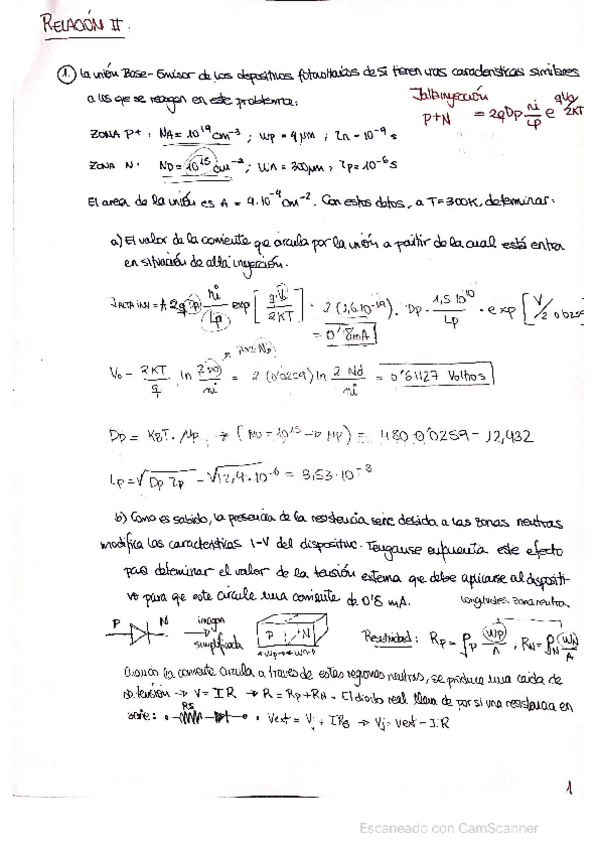 RELACIÓN II.
1. La unión Base-Emisor de los dispositivos fotovoltaicos de Si tienen unas características similares
a los que se recogen en este problema:
J alta inyección
P+N = 2qDp ni/Lp e^(qVa/2KT)
ZONA P+: NA = 10^19 cm^-3 ; Wp = 4 μm ; τn = 10^-9 s
ZONA N: ND = 10^15 cm^-3 ; Wn = 300 μm ; τp = 10^-6 s
El area de la unión es A = 4·10^-4 cm^-2. Con estos datos, a T=300K, determinar:
a) El valor de la corriente que circula por la unión a partir de la cual está entra
en situación de alta inyección.
J ALTA INY = A 2q Dp ni/Lp exp[qV/2KT] · 2(1,6·10^-19) · Dp · 1,5·10^10/Lp · exp[V/2·0'0259
= 0'8mA
V0 - 2KT/q ln = 2(0'0259) ln 2Nd/ni = 0'61127 Voltios
Dp = KBT·μp → (ND = 10^15 → μp) = 480·0'0259 - 12,432
Lp = √Dp τp - √12,4·10^-6 = 3,53·10^-3
b) Como es sabido, la presencia de la resistencia serie debida a las zonas neutras
modifica las características I-V del dispositivo. Tengase en cuenta este efecto
para determinar el valor de la tensión externa que debe aplicarse al dispositi-
vo para que este circule una corriente de 0'8 mA.
longitudes zona neutra.
P N imagen simplificada P N Wp Wn
Resistividad: Rp = ρp Wp/A , RN = ρN Wn/A
Cuando la corriente circula a traves de estas regiones neutras, se produce una caida de
tensión → V = IR → R = Rp + RN. El diodo real lleva de por si una resistencia en
serie: Rs Vext = Vj + IRs → Vj = Vext - I·R
1
Escaneado con CamScanner